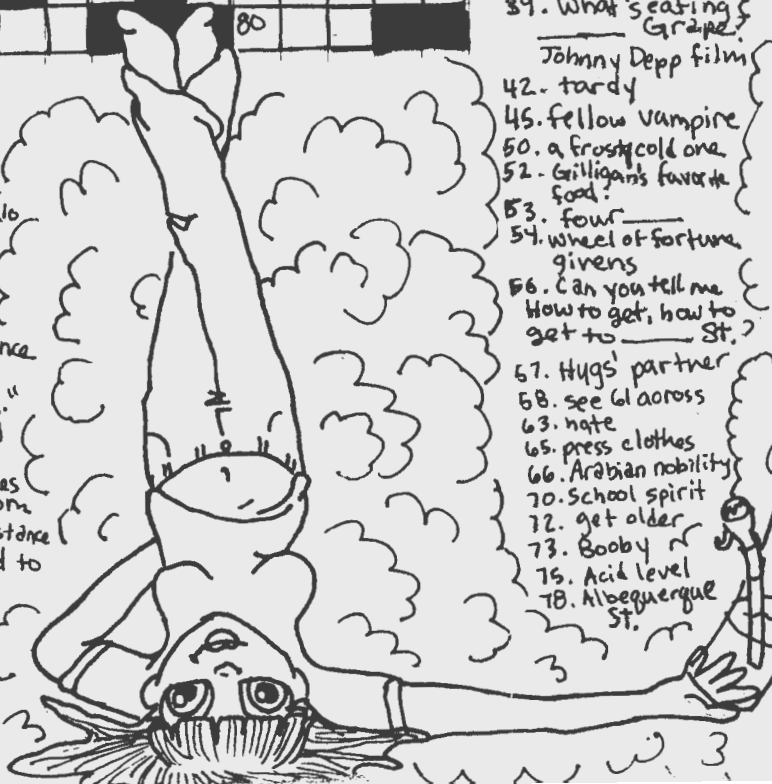 80
39. What's eating
Grape?
Johnny Depp film
42. tardy
45. fellow vampire
50. a frosty cold one
52. Gilligan's favorite
food?
53. four
54. wheel of fortune
givens
56. Can you tell me
How to get, how to
get to St.?
57. Hugs' partner
58. see 61 across
63. hate
65. press clothes
66. Arabian nobility
70. School spirit
72. get older
73. Booby
75. Acid level
78. Albequerque
St.
stance
d to